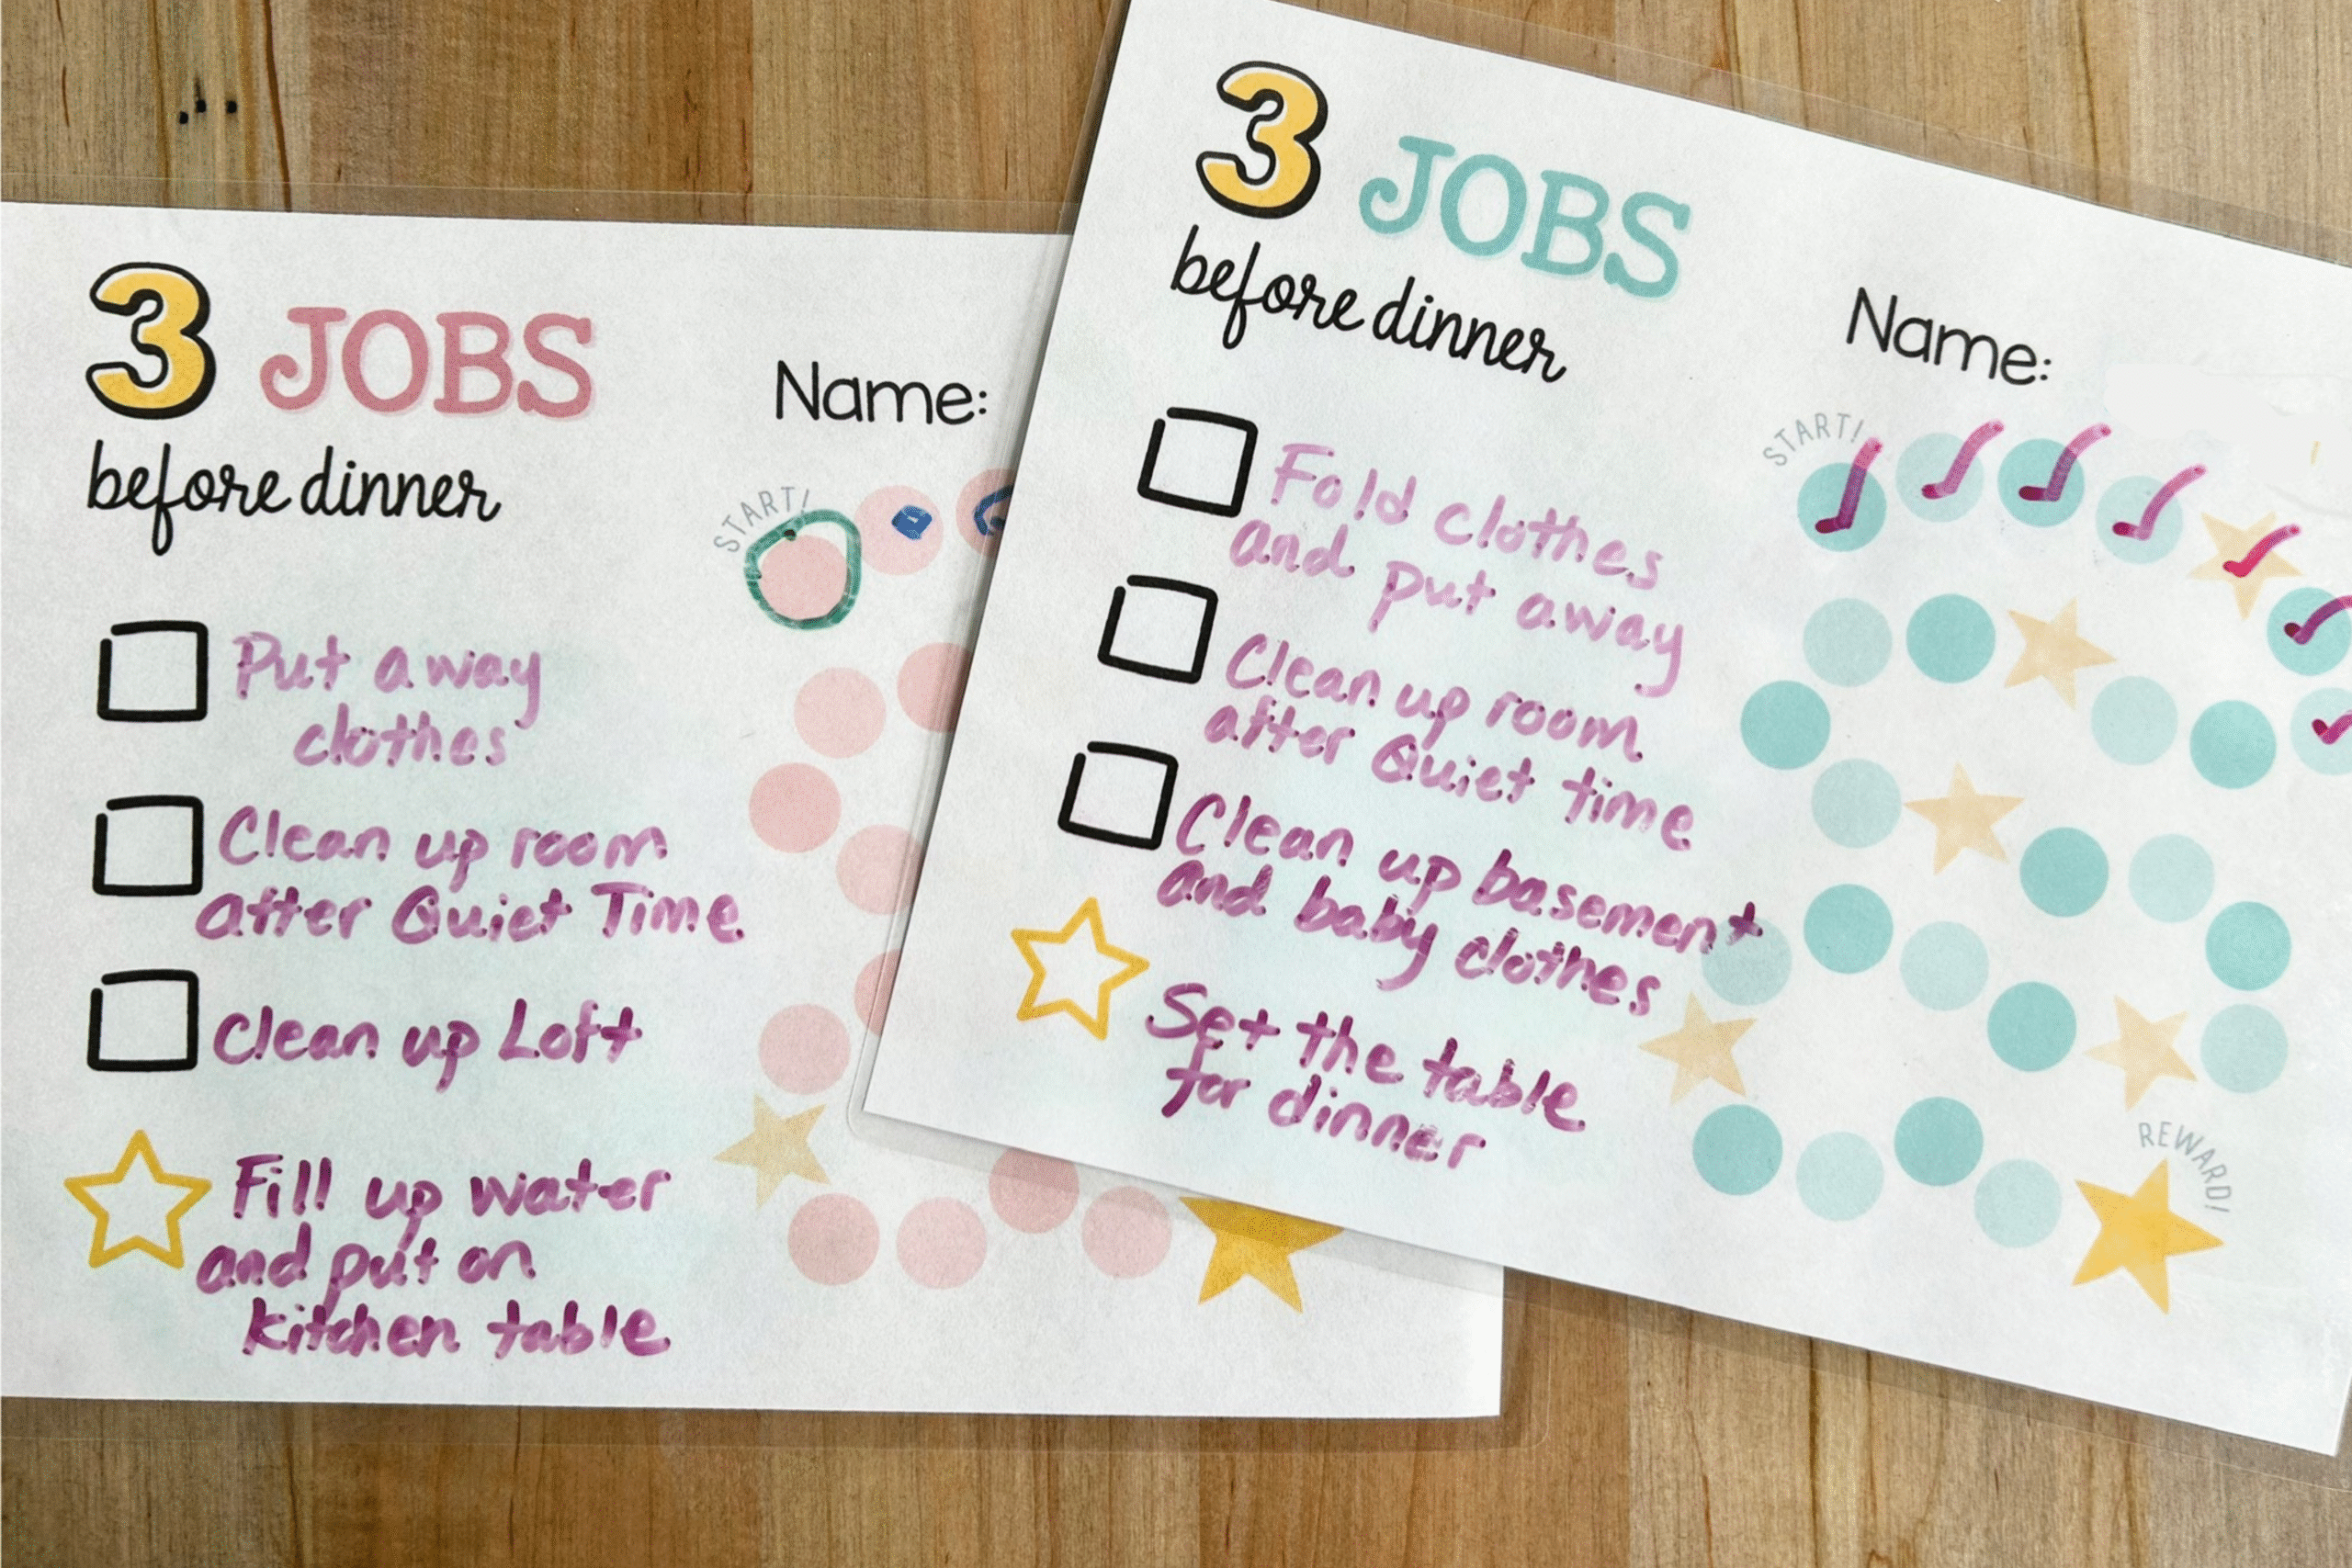 3 JOBS
before dinner
Name:
START!
Put away
clothes
Clean up room
after Quiet Time
Clean up Loft
Fill up water
and put on
kitchen table
3 JOBS
before dinner
Name:
START!
Fold clothes
and put away
Clean up room
after Quiet time
Clean up basement
and baby clothes
Set the table
for dinner
REWARD!